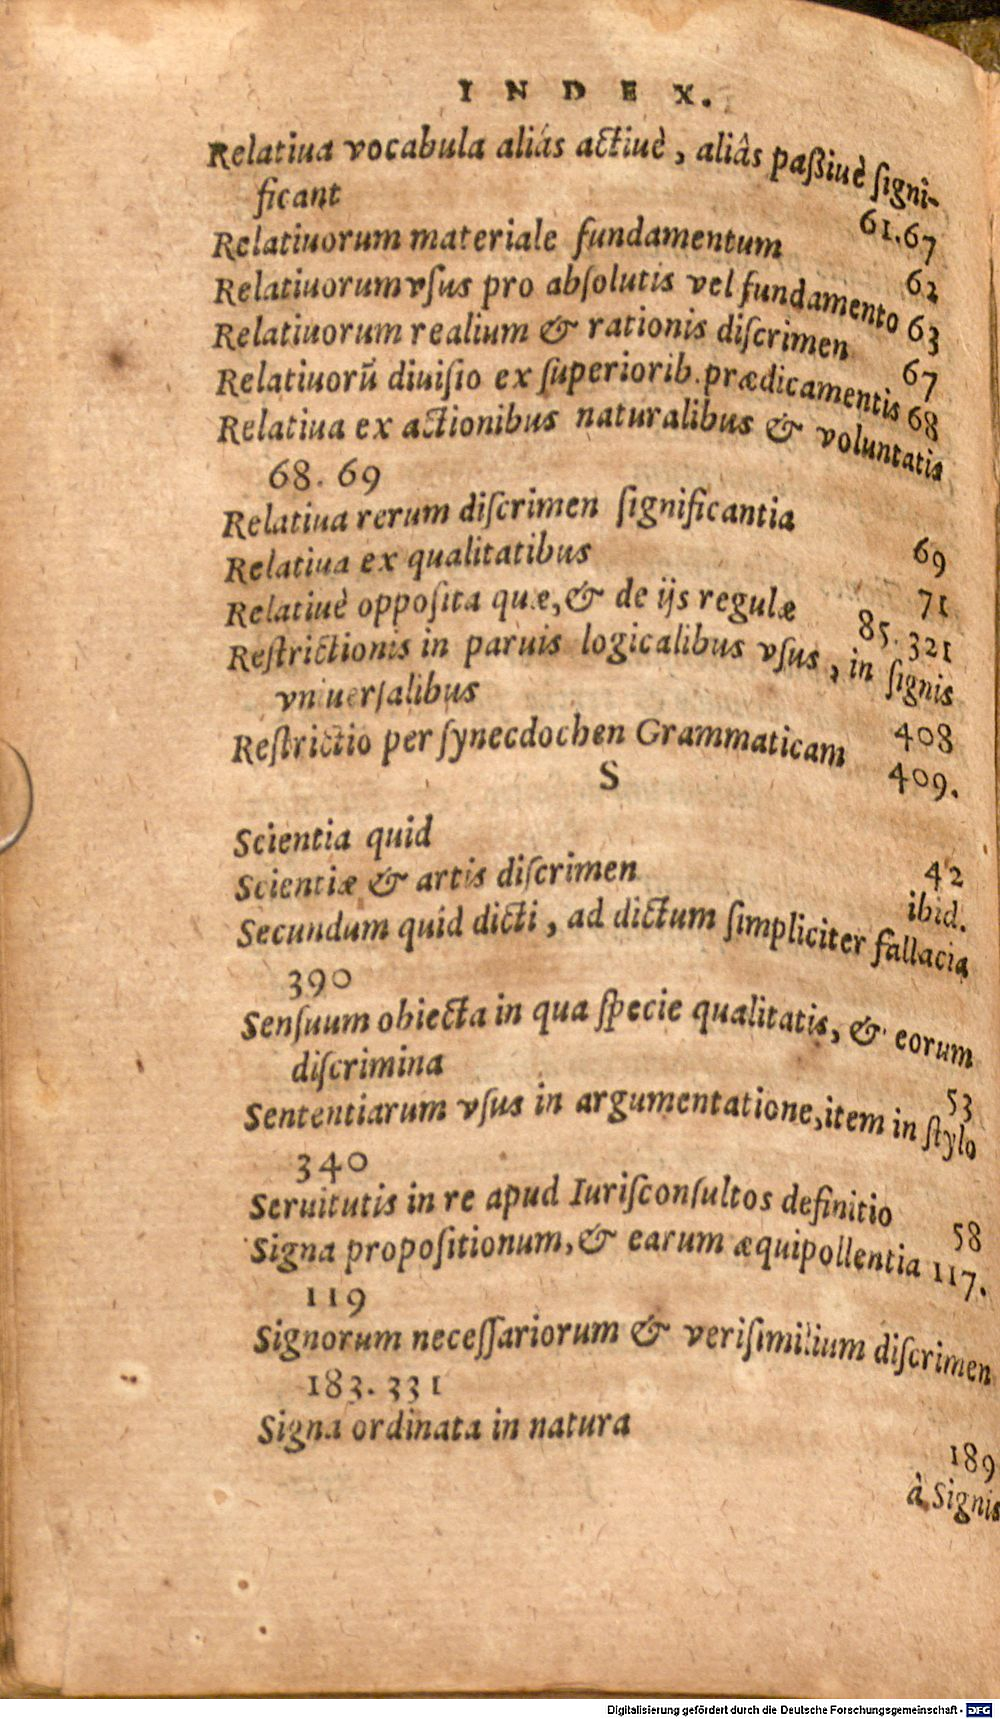 INDEX.
Relatiua vocabula aliás actiuè, aliâs paßiuè ſigni-
ficant 61.67
Relatiuorum materiale fundamentum 62
Relatiuorum vſus pro abſolutis vel fundamento 63
Relatiuorum realium & rationis diſcrimen 67
Relatiuorū diuiſio ex ſuperiorib. prædicamentis 68
Relatiua ex actionibus naturalibus & voluntatis
68. 69
Relatiua rerum diſcrimen ſignificantia 69
Relatiua ex qualitatibus 71
Relatiuè oppoſita quæ, & de ijs regulæ 85. 321
Reſtrictionis in paruis logicalibus vſus, in ſignis
vniuerſalibus 408
Reſtrictio per ſynecdochen Grammaticam 409.
S
Scientia quid 42
Scientiæ & artis diſcrimen ibid.
Secundum quid dicti, ad dictum ſimpliciter fallacia
390
Senſuum obiecta in qua ſpecie qualitatis, & eorum
diſcrimina 53
Sententiarum vſus in argumentatione, item in ſtylo
340
Seruitutis in re apud Iuriſconſultos definitio 58
Signa propoſitionum, & earum æquipollentia 117.
119
Signorum neceſſariorum & veriſimilium diſcrimen
183. 331
Signa ordinata in natura 189
à Signis
Digitalisierung gefördert durch die Deutsche Forschungsgemeinschaft - DFG